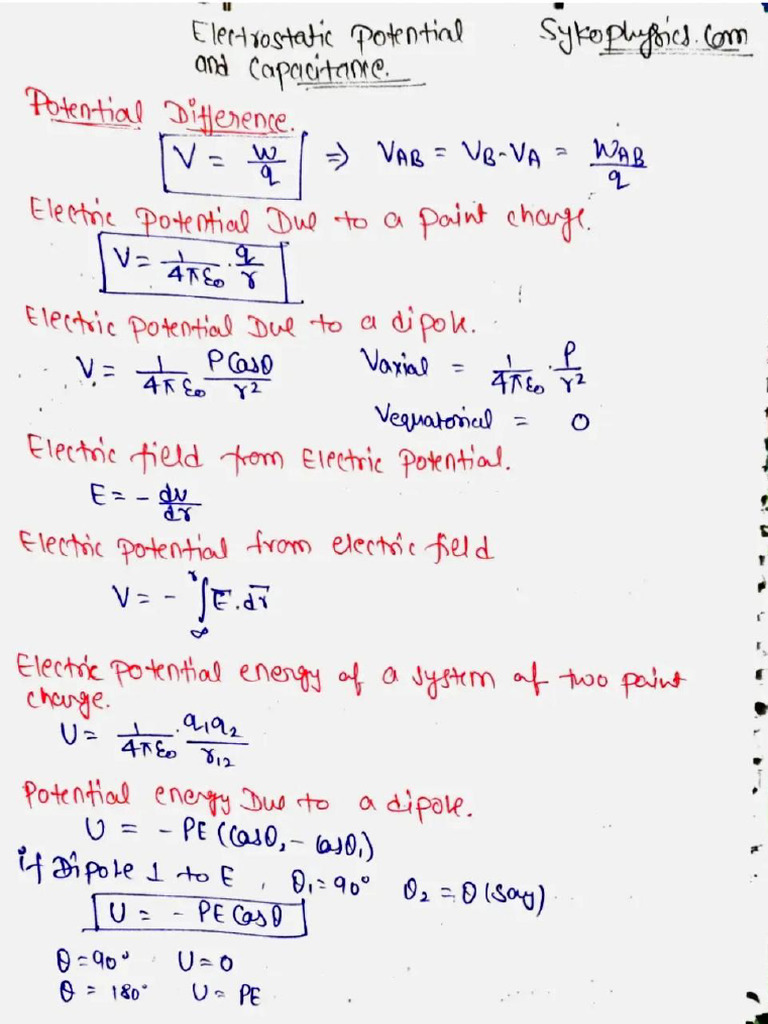 Electrostatic Potential Sykophysics.com
and Capacitance.
Potential Difference.
V = W/q ⇒ VAB = VB-VA = WAB/q
Electric Potential Due to a point charge.
V = 1/4πε0 . q/r
Electric Potential Due to a dipole.
V = 1/4πε0 PCosθ/r² Vaxial = 1/4πε0 . P/r²
Vequatorial = 0
Electric field from Electric Potential.
E = - dv/dr
Electric potential from electric field
V = - ∫∞^r E̅.dr̅
Electric potential energy of a system of two point
charge.
U = 1/4πε0 . q1q2/r12
Potential energy Due to a dipole.
U = - PE (Cosθ2 - Cosθ1)
if Dipole ⊥ to E, θ1 = 90° θ2 = θ (say)
U = - PE Cosθ
θ = 90° U = 0
θ = 180° U = PE